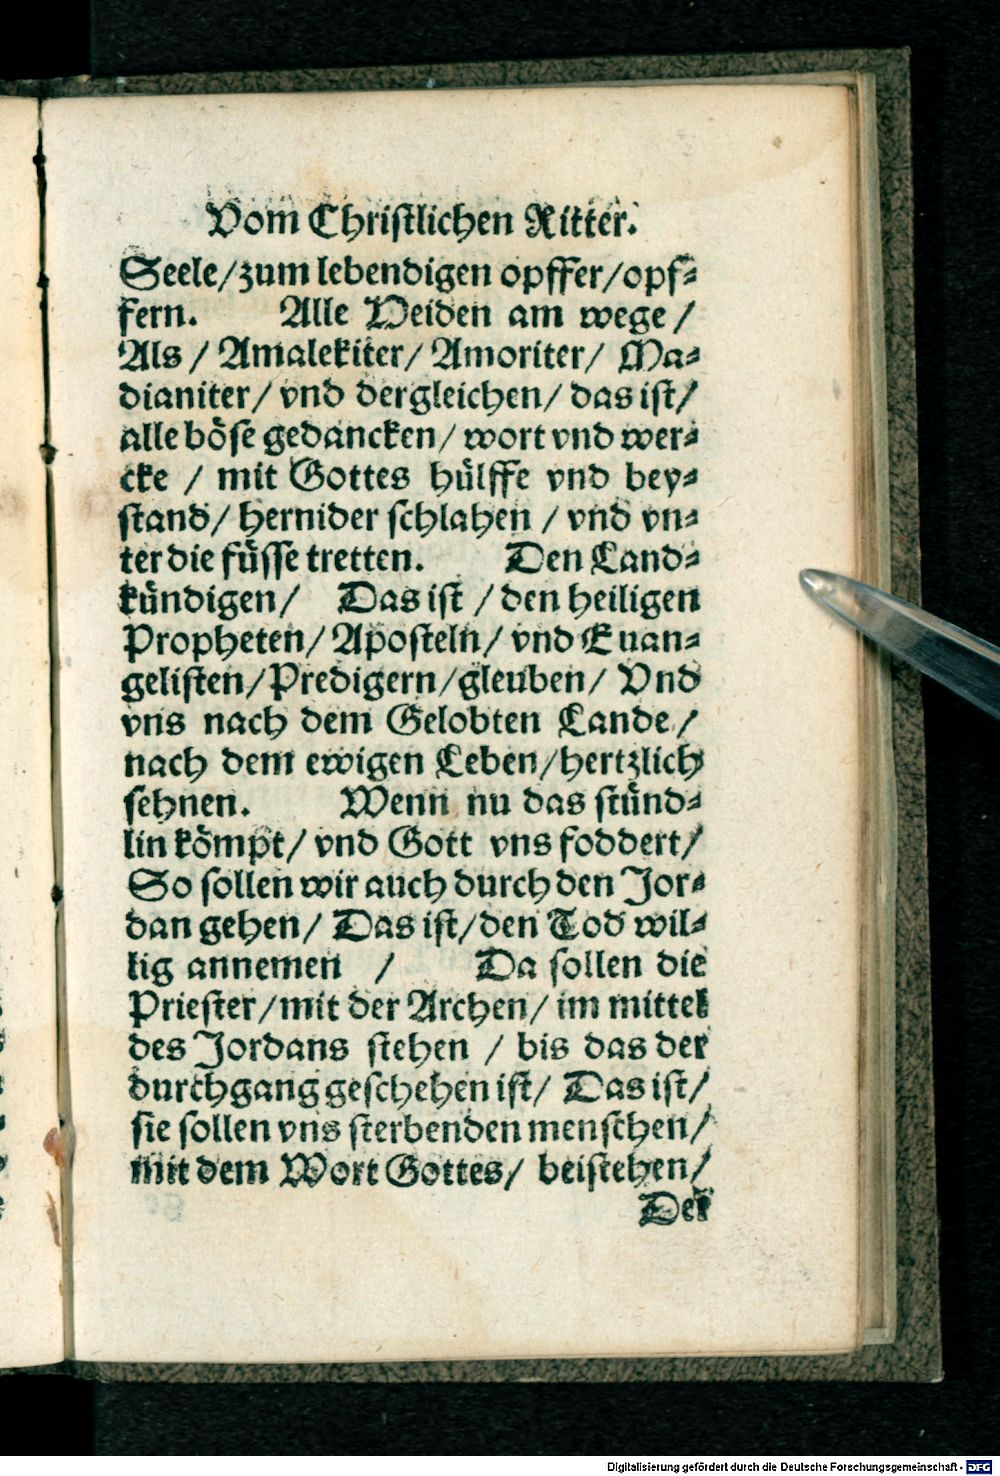 Vom Christlichen Ritter.
Seele/zum lebendigen opffer/opf⸗
fern. Alle Heiden am wege/
Als/ Amalekiter/ Amoriter/ Ma⸗
dianiter/ vnd dergleichen/ das ist/
alle böse gedancken/ wort vnd wer⸗
cke / mit Gottes hülffe vnd bey⸗
stand/ hernider schlahen / vnd vn⸗
ter die füsse tretten. Den Land⸗
kündigen/ Das ist / den heiligen
Propheten/ Aposteln/ vnd Euan⸗
gelisten/Predigern/gleuben/ Vnd
vns nach dem Gelobten Lande/
nach dem ewigen Leben/hertzlich
sehnen. Wenn nu das stünd⸗
lin kömpt/ vnd Gott vns foddert/
So sollen wir auch durch den Jor⸗
dan gehen/ Das ist/den Tod wil⸗
lig annemen / Da sollen die
Priester/mit der Archen/ im mittel
des Jordans stehen / bis das der
durchgang geschehen ist/ Das ist/
sie sollen vns sterbenden menschen/
mit dem Wort Gottes/ beistehen/
Der
Digitalisierung gefördert durch die Deutsche Forschungsgemeinschaft - DFG